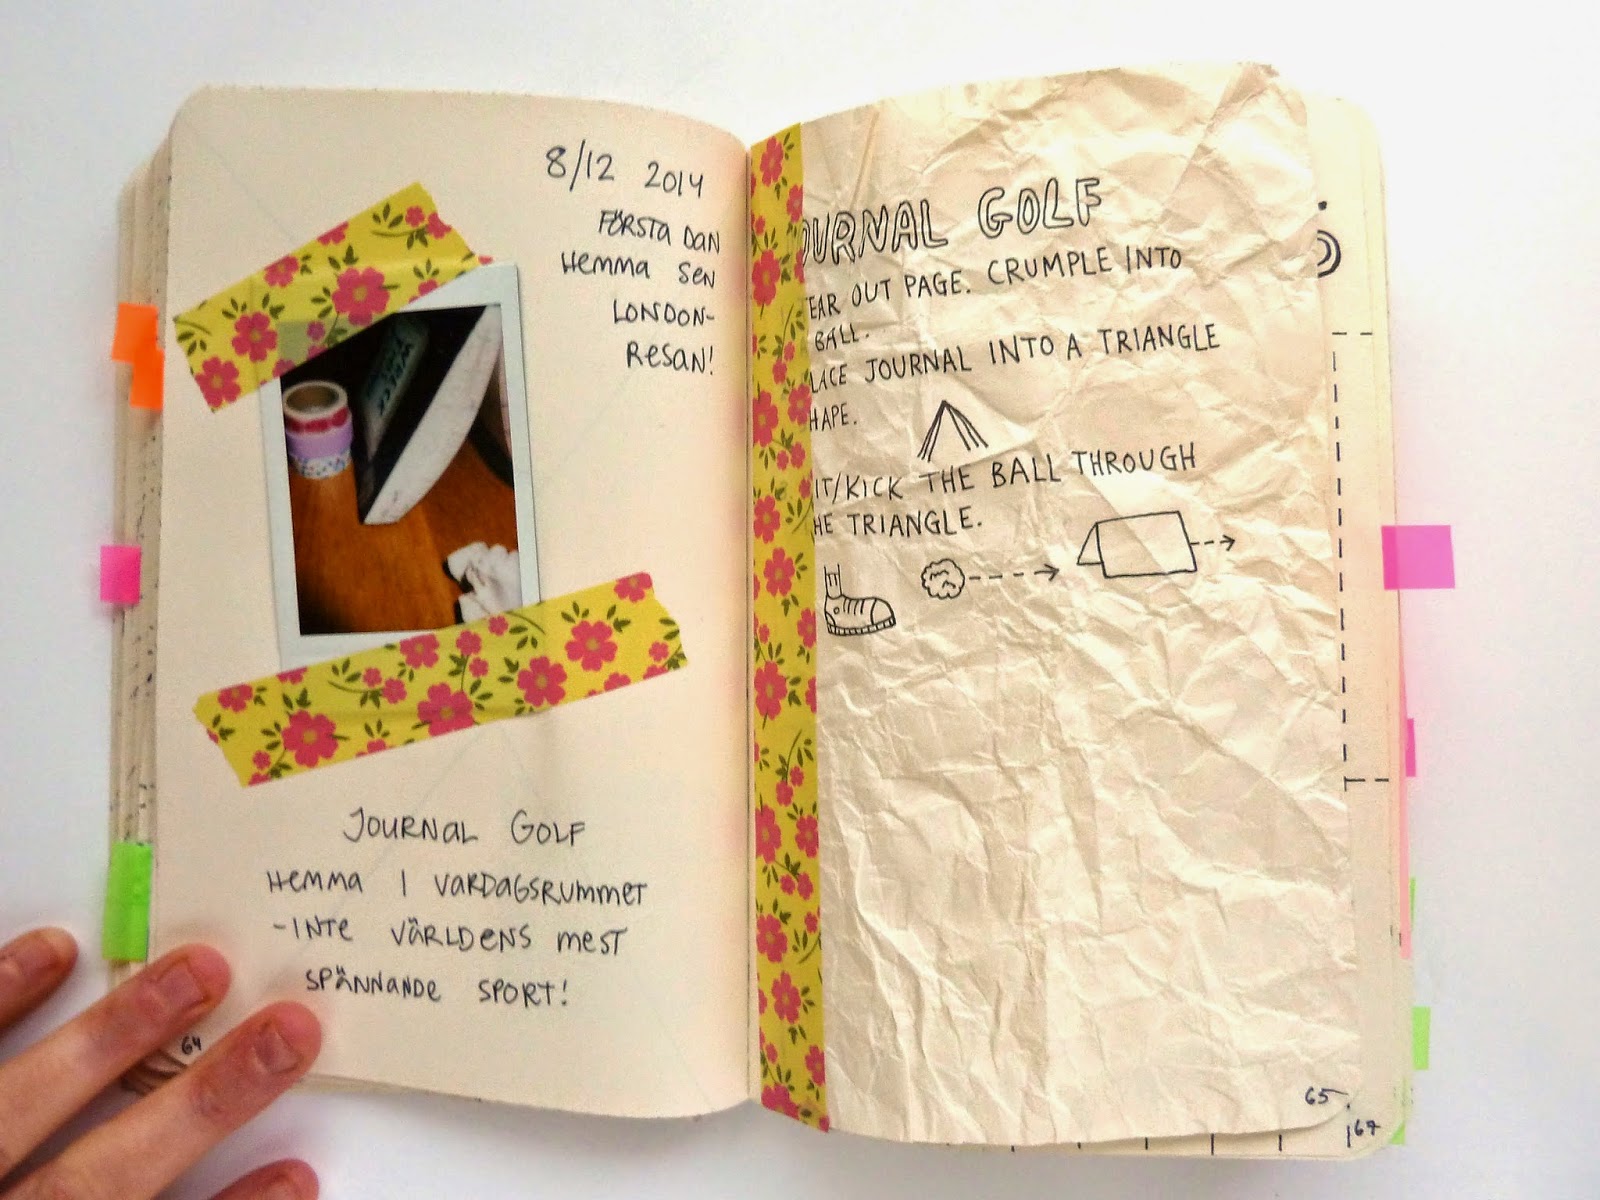 8/12 2014
FÖRSTA DAN
HEMMA SEN
LONDON-
RESAN!
JOURNAL GOLF
HEMMA I VARDAGSRUMMET
-INTE VÄRLDENS MEST
SPÄNNANDE SPORT!
64
OURNAL GOLF
EAR OUT PAGE. CRUMPLE INTO
BALL.
LACE JOURNAL INTO A TRIANGLE
HAPE.
IT/KICK THE BALL THROUGH
HE TRIANGLE.
65
67